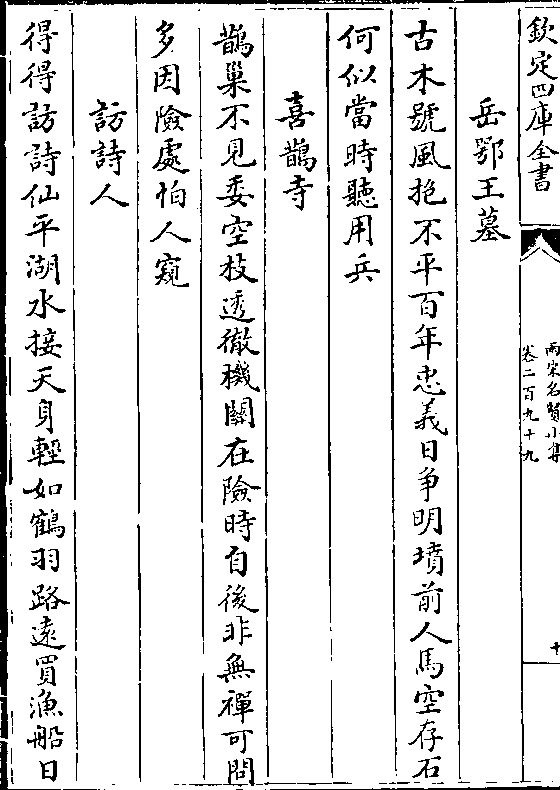 欽定四庫全書
兩宋名賢小集
卷二百九十九
十
岳鄂王墓
古木號風抱不平百年忠義日争明墳前人馬空存石
何似當時聽用兵
喜鵲寺
鵲巢不見委空枝透徹機關在險時自後非無禪可問
多因險處怕人窺
訪詩人
得得訪詩仙平湖水接天身輕如鶴羽路遠買漁船日